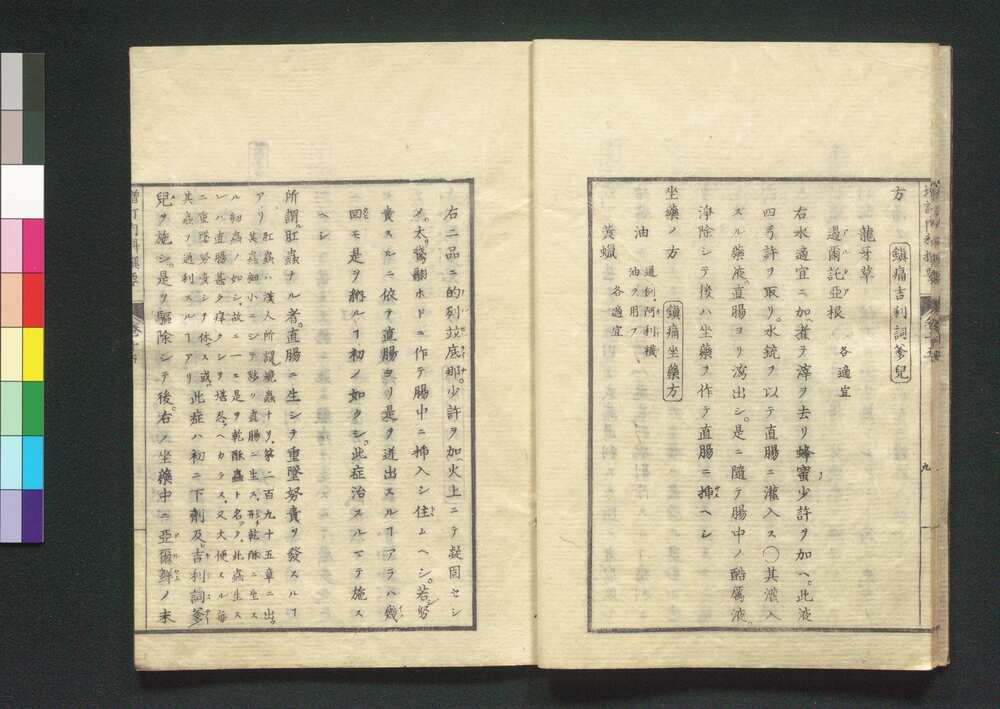 方
鎮痛吉利詞爹兒
龍牙草
邊爾託亞根
各適宜
右水適宜ニ加煮テ滓ヲ去リ蜂蜜少許ヲ加ヘ此液
四弓許ヲ取リ水銃ヲ以テ直腸ニ灌入ス〇其灌入
スル藥液直腸ヨリ瀉出シ是ニ隨テ腸中ノ酷厲液
淨除シテ後ハ坐藥ヲ作テ直腸ニ挿ヘシ
坐藥ノ方
鎮痛坐藥方
油
通例阿利襪
油ヲ用フ
黄蠟
各適宜
右二品ニ的列並底那少許ヲ加火上ニテ凝固セシ
メ太サ鵞翮ホドニ作テ腸中ニ挿入シ住ムヘシ若努
責スルニ依テ直腸ヨリ是ヲ迸出スルヿアラハ幾
回モ是ヲ納ルヿ初ノ如クシ此症治スルマテ施ス
ヘシ
所謂肛蟲ナル者直腸ニ生シテ重墜努責ヲ發スルヿ
アリ
肛蟲ハ漢人所謂蟯蟲ナリ第二百九十五章ニ出
其蟲細小ニシテ夥ク直腸ニ生ス形乾酥ニ生ス
ル細蟲ノ如シ故ニ一ニ是ヲ乾酥蟲ト名ク此蟲生ス
レハ直腸甚タ痒クシテ堪忍ヘカラス又大便スル毎
ニ重墜努責シテ休ス或
此症ハ初ニ下劑及吉利詞爹
其蟲ヲ通利スルヿアリ
兒ヲ施シ是ヲ驅除シテ後右ノ坐藥中ニ亞爾鮮ノ末